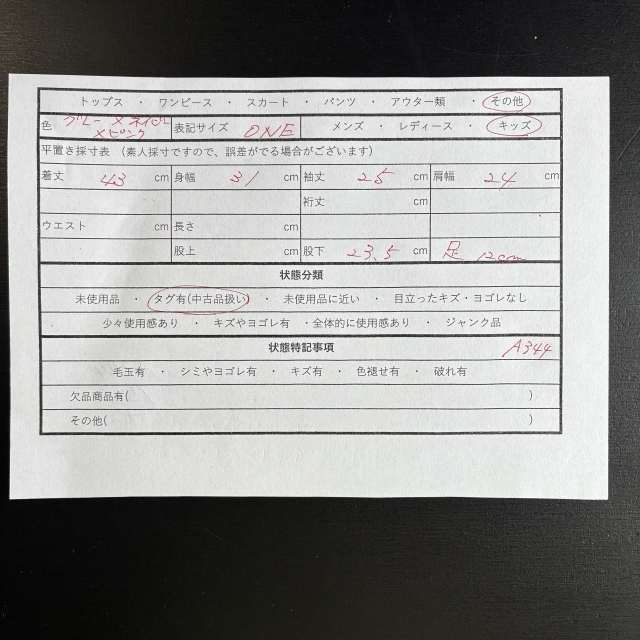 トップス ・ ワンピース ・ スカート ・ パンツ ・ アウター類 ・ その他
色 グレー×ネイビー×ピンク 表記サイズ ONE メンズ ・ レディース ・ キッズ
平置き採寸表 （素人採寸ですので、誤差がでる場合がございます）
着丈 43 cm 身幅 31 cm 袖丈 25 cm 肩幅 24 cm
裄丈 cm
ウエスト cm 長さ cm
股上 cm 股下 23.5 cm 足 12cm
状態分類
未使用品 ・ タグ有(中古品扱い) ・ 未使用品に近い ・ 目立ったキズ・ヨゴレなし
少々使用感あり ・ キズやヨゴレ有 ・全体的に使用感あり ・ ジャンク品
状態特記事項 A344
毛玉有 ・ シミやヨゴレ有 ・ キズ有 ・ 色褪せ有 ・ 破れ有
欠品商品有( )
その他( )